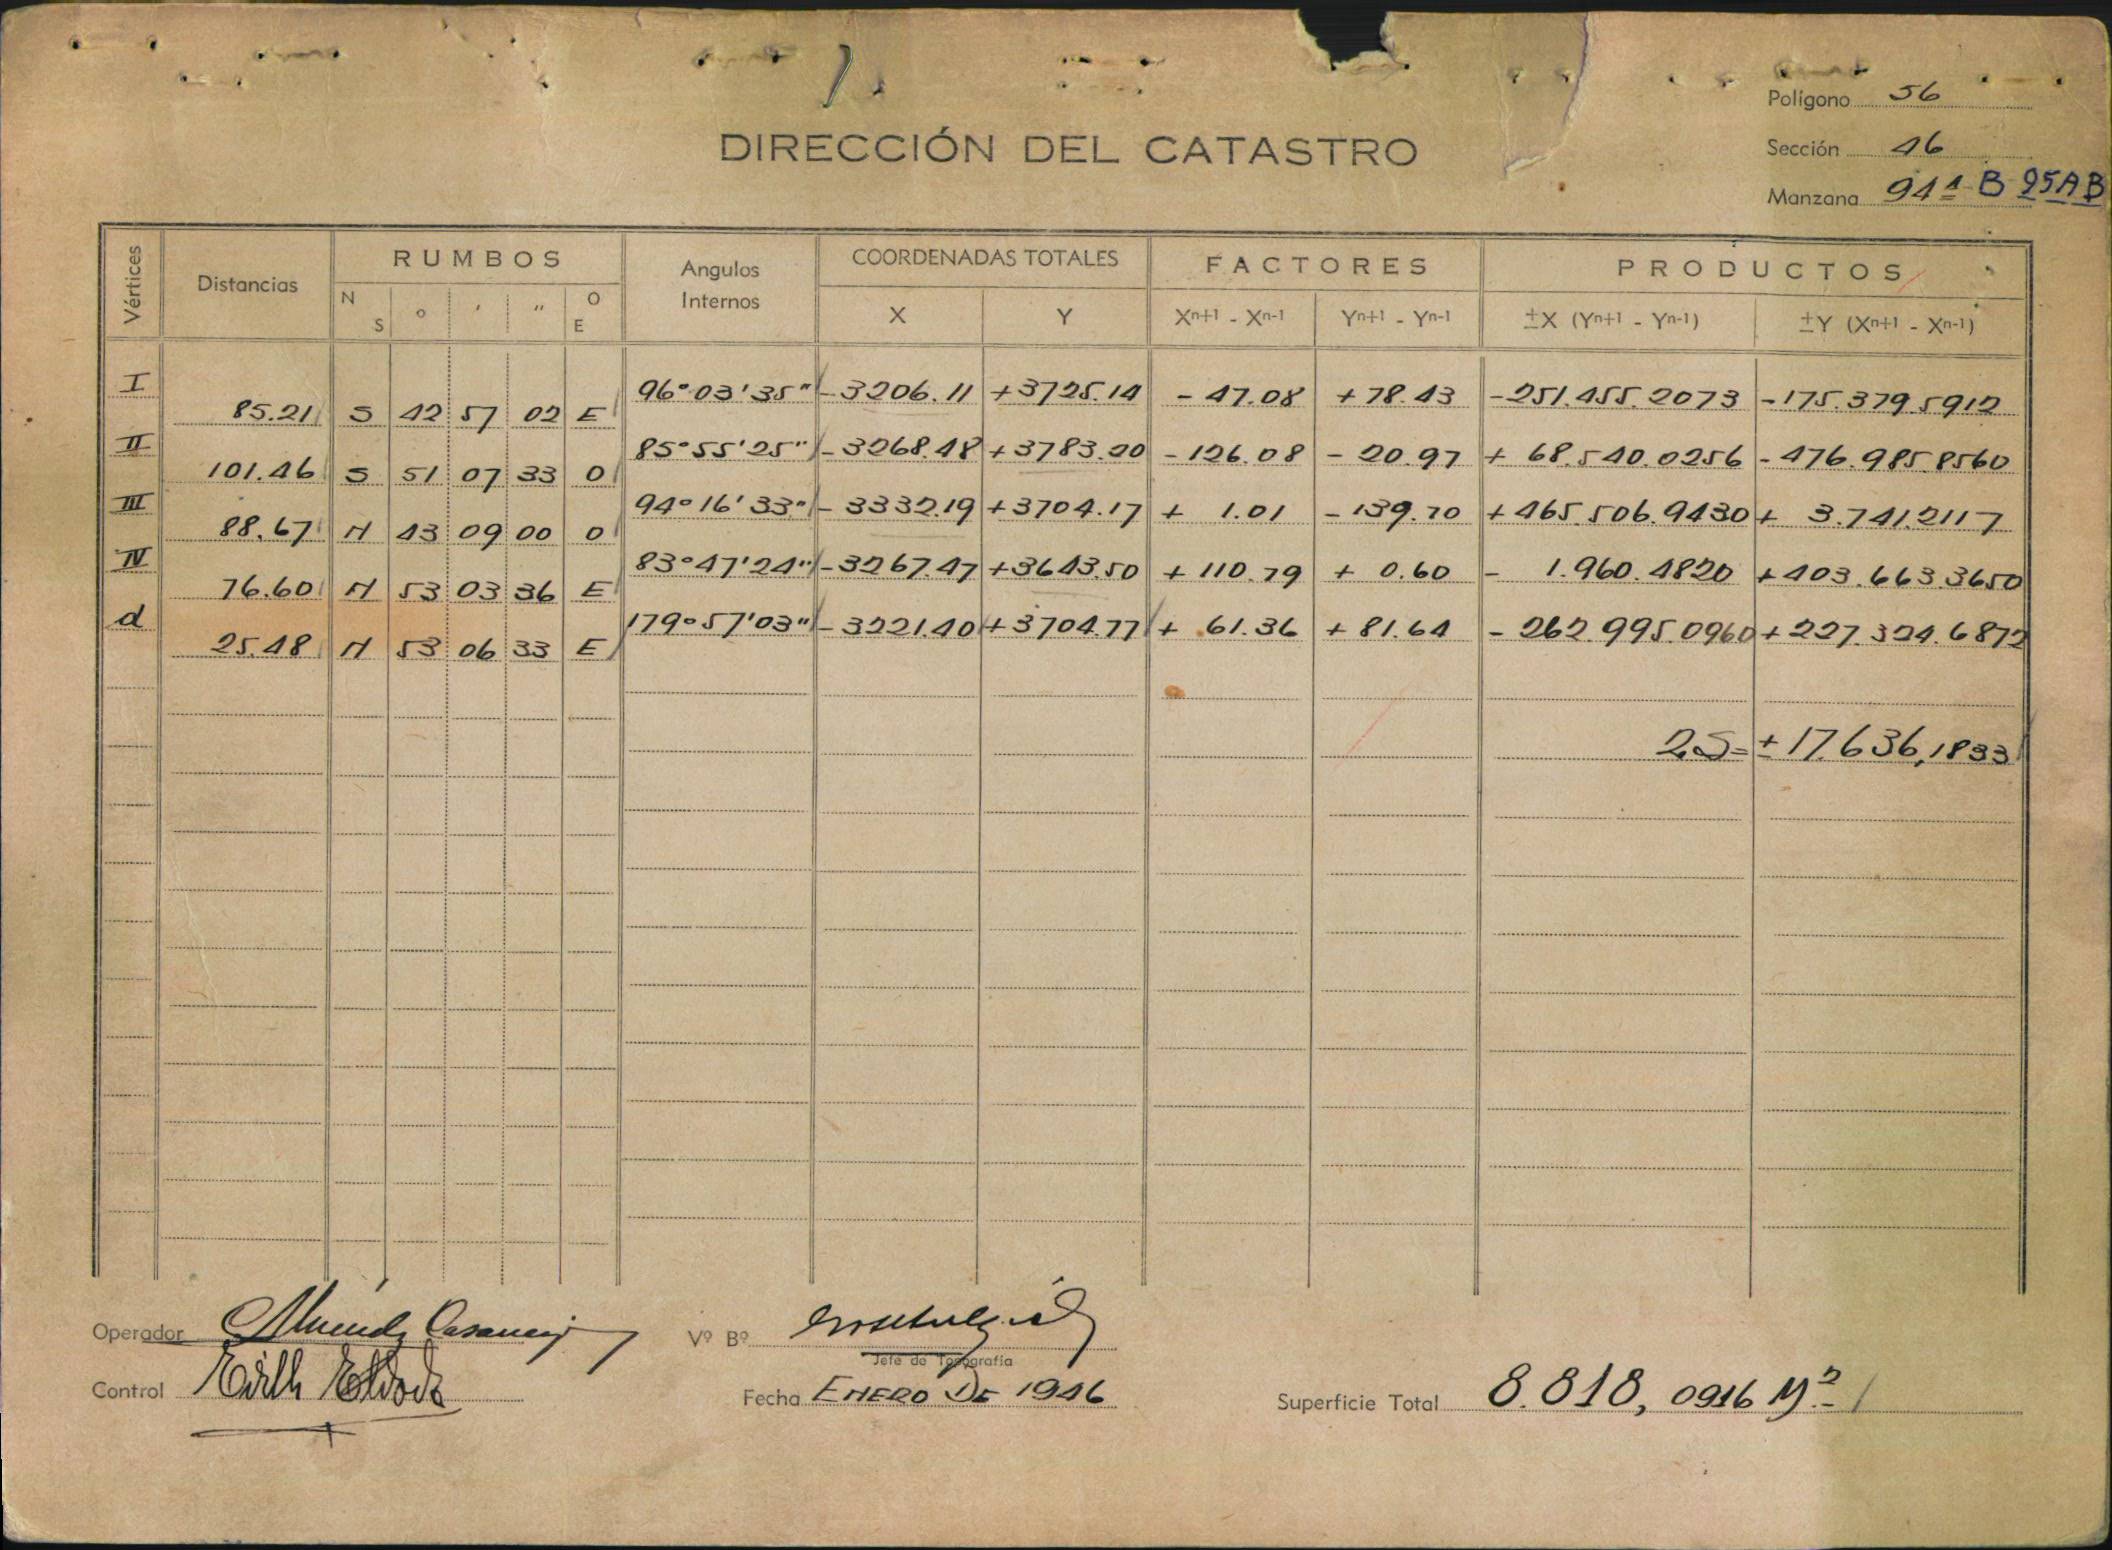 Polígono 56
DIRECCIÓN DEL CATASTRO
Sección 46
Manzana 94ª B 25AB
Vértices Distancias RUMBOS Angulos Internos COORDENADAS TOTALES FACTORES PRODUCTOS
N S ° ' " O E X Y Xn+1 - Xn-1 Yn+1 - Yn-1 ±X (Yn+1 - Yn-1) ±Y (Xn+1 - Xn-1)
I 96°03'35" -3206.11 +3725.14 -47.08 +78.43 -251.455.2073 -175.379.5912
85.21 S 42 57 02 E
II 85°55'25" -3268.48 +3783.20 -126.08 -20.97 +68.540.0256 -476.985.8560
101.46 S 51 07 33 O
III 94°16'33" -3332.19 +3704.17 +1.01 -139.70 +465.506.9430 +3.741.2117
88.67 N 43 09 00 O
IV 83°47'24" -3267.47 +3643.50 +110.79 +0.60 -1.960.4820 +403.663.3650
76.60 N 53 03 36 E
d 179°57'03" -3221.40 +3704.77 +61.36 +81.64 -262.995.0960 +227.324.6872
25.48 N 53 06 33 E
2S= ±17.636,1833
Operador Vº Bº
Jefe de Topografía
Control Fecha ENERO DE 1946 Superficie Total 8.818,0916 M²